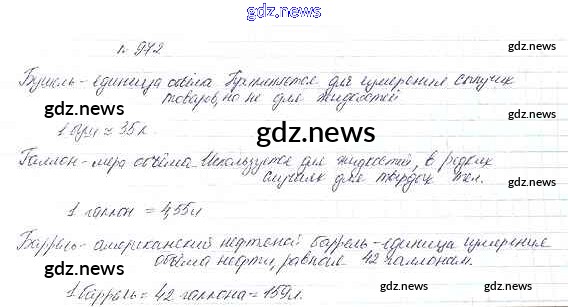 gdz.news
№ 942
gdz.news
Бушель - единица объёма. Применяется для измерения сыпучих
товаров, но не для жидкостей
gdz.news
gdz.news
1 буш ≈ 35 л.
gdz.news
Галлон - мера объёма. Используется для жидкостей, в редких
случаях для твердых тел.
gdz.news
1 галлон = 4,55 л
gdz.news
Баррель - американский нефтяной баррель - единица измерения
объёма нефти, равная 42 галлонам.
gdz.news
gdz.news
1 баррель = 42 галлона = 159 л.
gdz.news